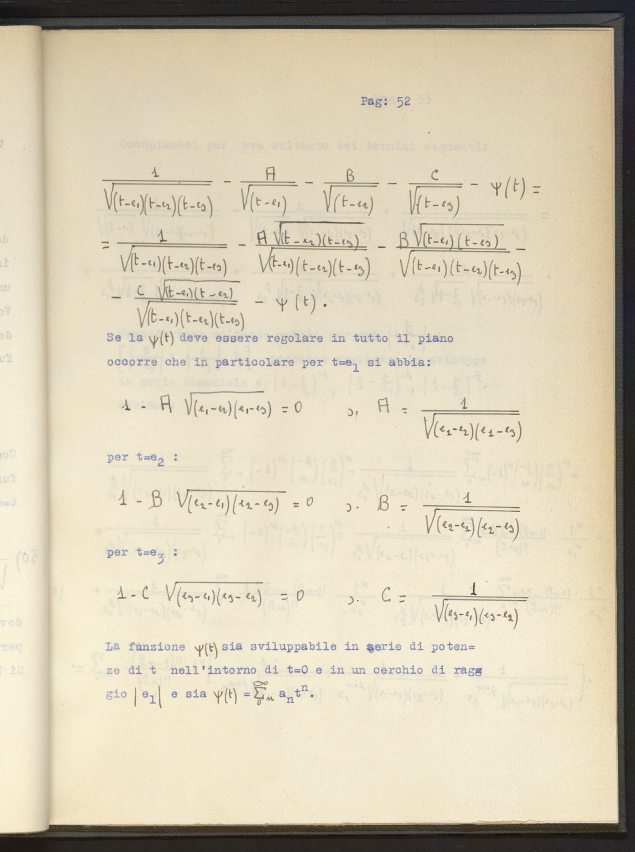 Pag: 52
1/√(t-e₁)(t-e₂)(t-e₃) - A/√(t-e₁) - B/√(t-e₂) - C/√(t-e₃) - ψ(t) =
= 1/√(t-e₁)(t-e₂)(t-e₃) - A√(t-e₂)(t-e₃)/√(t-e₁)(t-e₂)(t-e₃) - B√(t-e₁)(t-e₃)/√(t-e₁)(t-e₂)(t-e₃) -
- C√(t-e₁)(t-e₂)/√(t-e₁)(t-e₂)(t-e₃) - ψ(t).
Se la ψ(t) deve essere regolare in tutto il piano
occorre che in particolare per t=e₁ si abbia:
1 - A √(e₁-e₂)(e₁-e₃) = 0 ɔ. A = 1/√(e₁-e₂)(e₁-e₃)
per t=e₂ :
1 - B √(e₂-e₁)(e₂-e₃) = 0 ɔ. B = 1/√(e₂-e₁)(e₂-e₃)
per t=e₃ :
1 - C √(e₃-e₁)(e₃-e₂) = 0 ɔ. C = 1/√(e₃-e₁)(e₃-e₂)
La funzione ψ(t) sia sviluppabile in serie di poten=
ze di t nell'intorno di t=0 e in un cerchio di rag=
gio |e₁| e sia ψ(t) = ∑₀^∞ₙ aₙtⁿ.